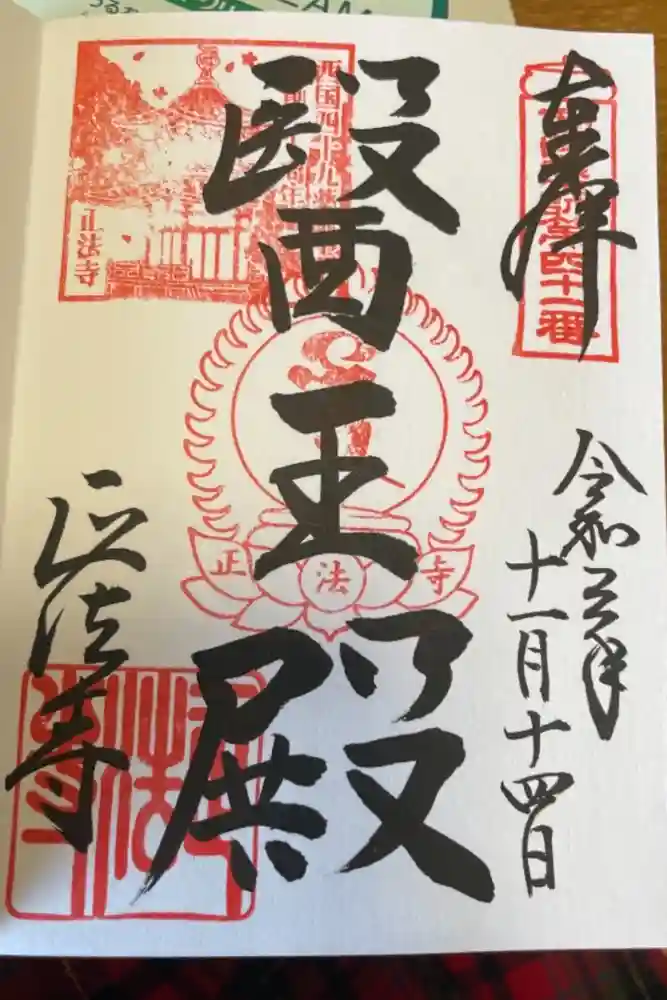 奉拝
四十一番
令和三年
十一月十四日
醫王殿
西国四十九薬師
正法寺
正法寺
正法寺